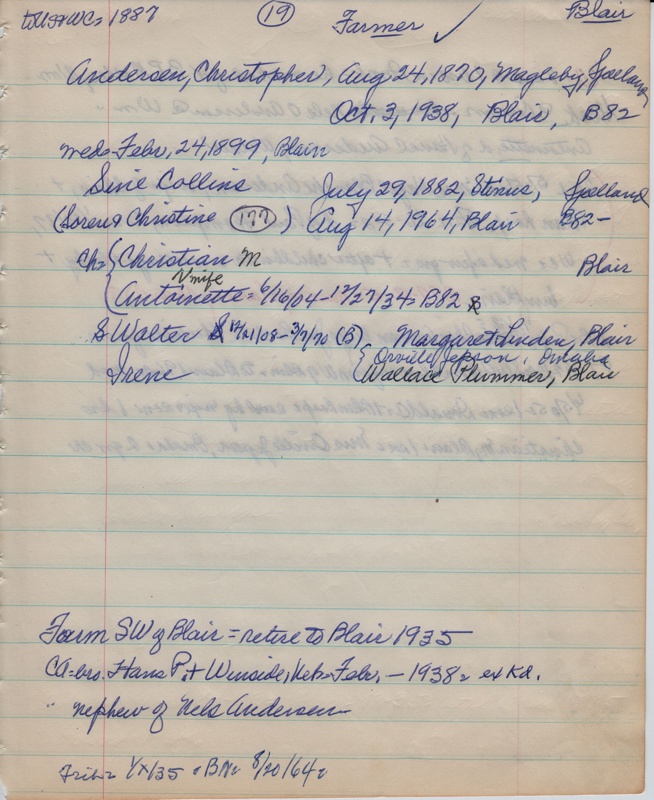 to US & WC = 1887 (19) Farmer ✓ Blair
Andersen, Christopher, Aug 24, 1870, Magleby, Sjelland
Oct. 3, 1938, Blair, B82
wed = Febr. 24, 1899, Blair
Sine Collins July 29, 1882, Stinus, Sjelland
(Soren & Christine (177)) Aug 14, 1964, Blair B82 -
Ch = { Christian M Blair
Antoinette = 6/16/04 - 12/27/34 = B82
S Walter 12/21/08 - 3/7/70 (B) Margaret Linden, Blair
Irene { Orville Jepson, Omaha
Wallace Plummer, Blair
Farm SW of Blair = retire to Blair 1935
CA = bro. Hans P. + Winside, Neb = Febr. - 1938 =
" nephew of Nels Andersen
Trib = 1/X/35 = BN = 8/20/64 =